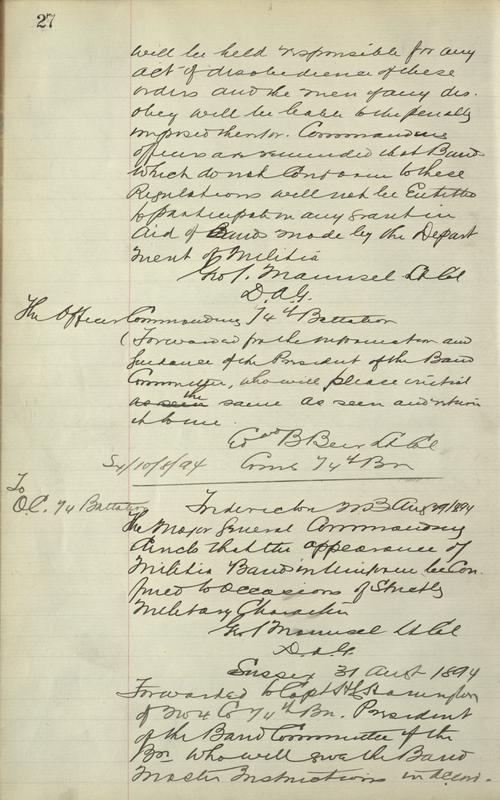 27
will be held responsible for any
act of disobedience of these
orders and the men of any dis-
obey will be liable to the penalty
imposed therefor. Commanding
officers are reminded that Bands
which do not conform to these
Regulations will not be Entitled
to participate in any grant in
Aid of Bands made by the Depart
ment of Militia
Geo J. Maunsel Lt Col
D.A.G.
The Officer Commanding 74th Battalion
(Forwarded for the information and
guidance of the President of the Band
Committee, who will please initial
as seen the same as seen and return
it to me.
Edwd B Beer Lt Col
Sx/10/8/94 Comg 74th Bn
To
O.C. 74 Battalion Fredericton NB Aug 29/1894
The Major General Commanding
directs that the appearance of
Militia Bands in Uniform be Con-
fined to occasions of Strictly
Military Character
Geo J Maunsel Lt Col
D.A.G.
Sussex 31 Augt 1894
Forwarded to Capt
of No 4 Co 74th Bn. President
of the Band Committee of the
Bn who will give the Band
Master Instructions in accord-